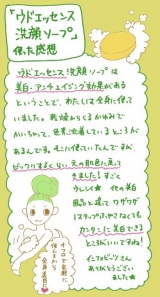 「ウドエッセンス
洗顔ソープ」
使った感想
ウドエッセンス洗顔ソープは
美白・アンチエイジング効果がある
ということで、わたしは全身に使って
いました。乾燥からくるかゆみで
かいちゃって、色素沈着しているところが
あるんです。そこに使っていたんですが、
ビックリするくらい元の肌色に戻って
きました!すごく
ウレシイ★ 他の美容
用品と違ってワザワザ
1ステップふやさなくても
カンタンに美白できる
ところがいいですね!
インフルビーンズさん
ありがとうござい
ました★